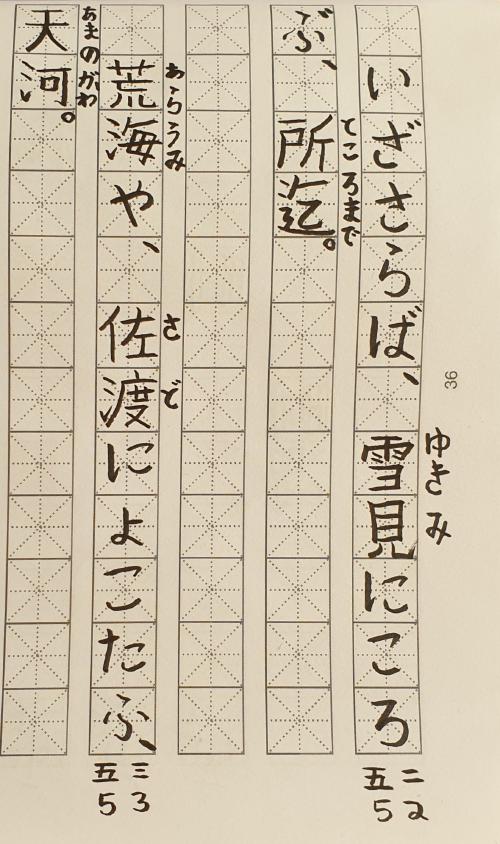 36
いざさらば、雪見にころ
ゆきみ
二2
五5
ぶ、所迄。
ところまで
荒海や、佐渡によこたふ、
あらうみ
さど
三3
五5
天河。
あまのがわ